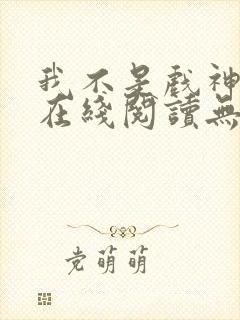 我不是戲神
在綫閱讀無
党萌萌